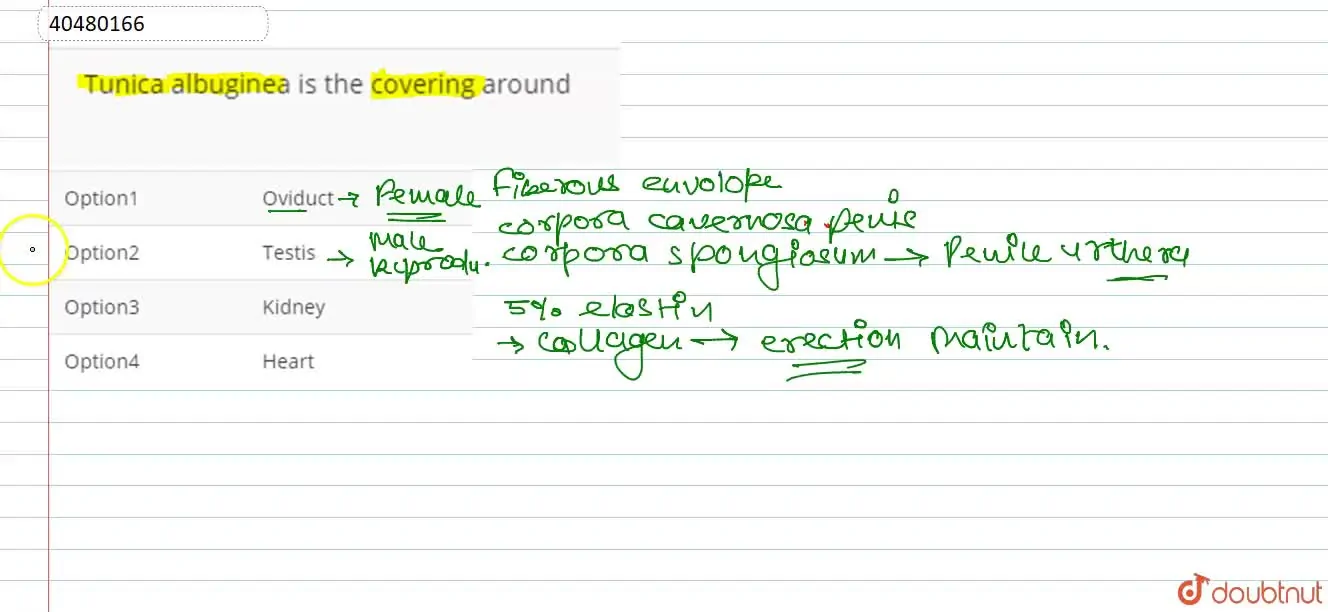 40480166
Tunica albuginea is the covering around
Option1 Oviduct → Female fiberous envolope
corpora cavernosa penis
Option2 Testis → Male Reprodu. corpora spongiosum → Penile urthera
Option3 Kidney 5% elastin
→ collagen → erection maintain.
Option4 Heart
doubtnut